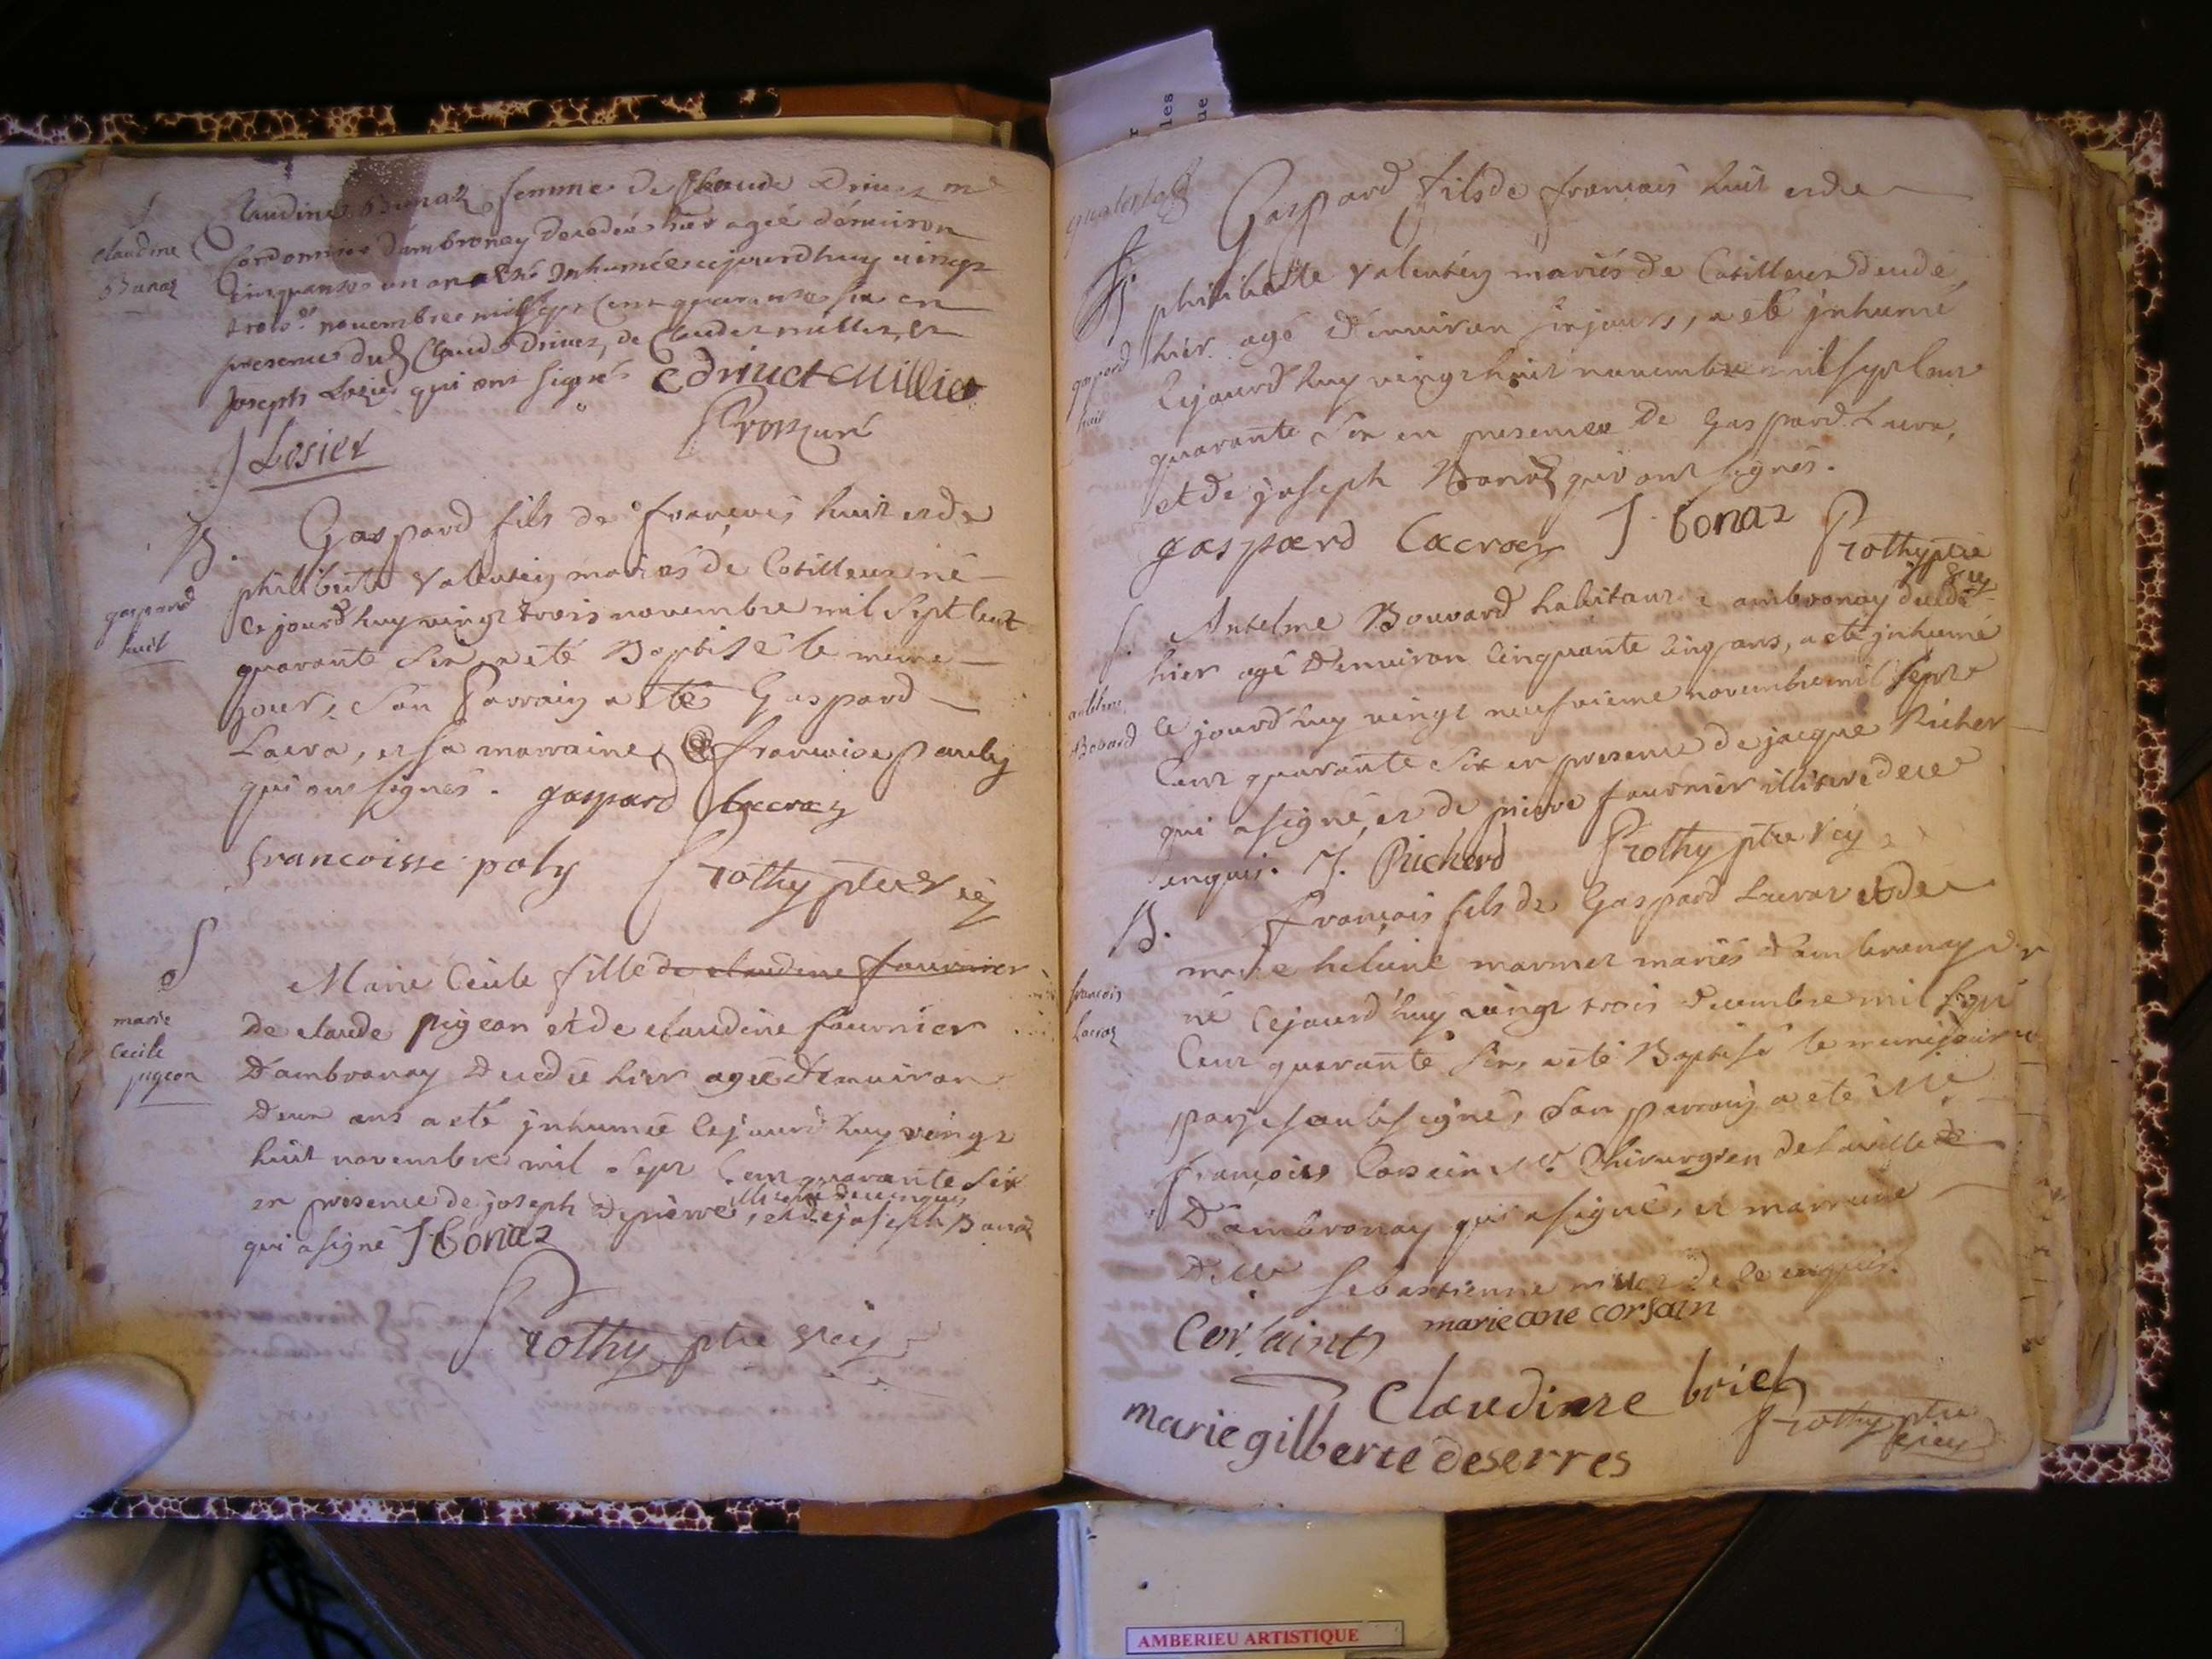 S
claudine
Banaz
Claudine Banaz femme de Claude Drivez me
Cordonnier d'ambronay decedeé hier ageé d'environ
Cinquante un an a eté Inhumeé cejourdhuy vingt
trois novembre mil sept cent quarante six en
presence dud Claude Drivez, de Claude millier, et
Joseph Losier qui ont signés C drivet Millier
J Losier
B.
gaspard
huit
Gaspard fils de françois huit et de
philiberte Valentin mariés de Cotilleux né
cejourd huy vingt trois novembre mil Sept Cent
quarante Six, a eté Baptisé le meme
jour, Son Parrain a eté Gaspard
Lacra, et sa marraine françoise pauly
qui ont signés. gaspard Lacroy
francoisse poly Prothy ptre vic
S
marie
Cecile
pigeon
Marie Cecile fille de claudine fournier
de claude pigeon et de claudine fournier
D'ambronay decedeé hier ageé d'environ
deux ans a eté jnhumeé cejourd huy vingt
huit novembre mil Sept Cent quarante Six
illiteré de ce enquis
en presence de joseph depierre, et de joseph Banaz
qui a signé J Bonaz
Prothy ptre vic
S.
gaspard
huit
Gaspard fils de francois huit et de
philiberte Valentin mariés de Cotilleux decedé
hier agé d'environ six jours, a eté jnhumé
Cejourd huy vingt huit novembre mil sept Cent
quarante Six en presence de Gaspard Lacra,
et de joseph Banaz qui ont signés.
gaspard Lacroy J. bonaz Prothy ptre
vic
S.
antelme
Bovard
Antelme Bouvard habitant a ambronay decedé
hier agé d'environ Cinquante Cinq ans, a eté jnhumé
ce jourd huy vingt neufvieme novembre mil Sept
Cent quarante Six en presence de jacque Richer
qui a signé, et de pierre fournier illiteré de ce
enquis. J. Richerd Prothy ptre vic
B.
francois
Lacraz
François fils de Gaspard Lacraz et de
marie helaine marmet mariés d'ambronay
né cejourd'huy vingt trois decembre mil Sept
Cent quarante Six, a eté Baptisé le meme jour
par je soubsigné, Son parrain a eté Mr
françois Corsain Me Chirurgien de la ville
D'ambronay qui a signé, et marraine
Delle Sebastienne millet de ce enquis.
Corsaint marie ane corsain
Claudinne briel
marie gilberte deserres Prothy ptre
vic
AMBERIEU ARTISTIQUE